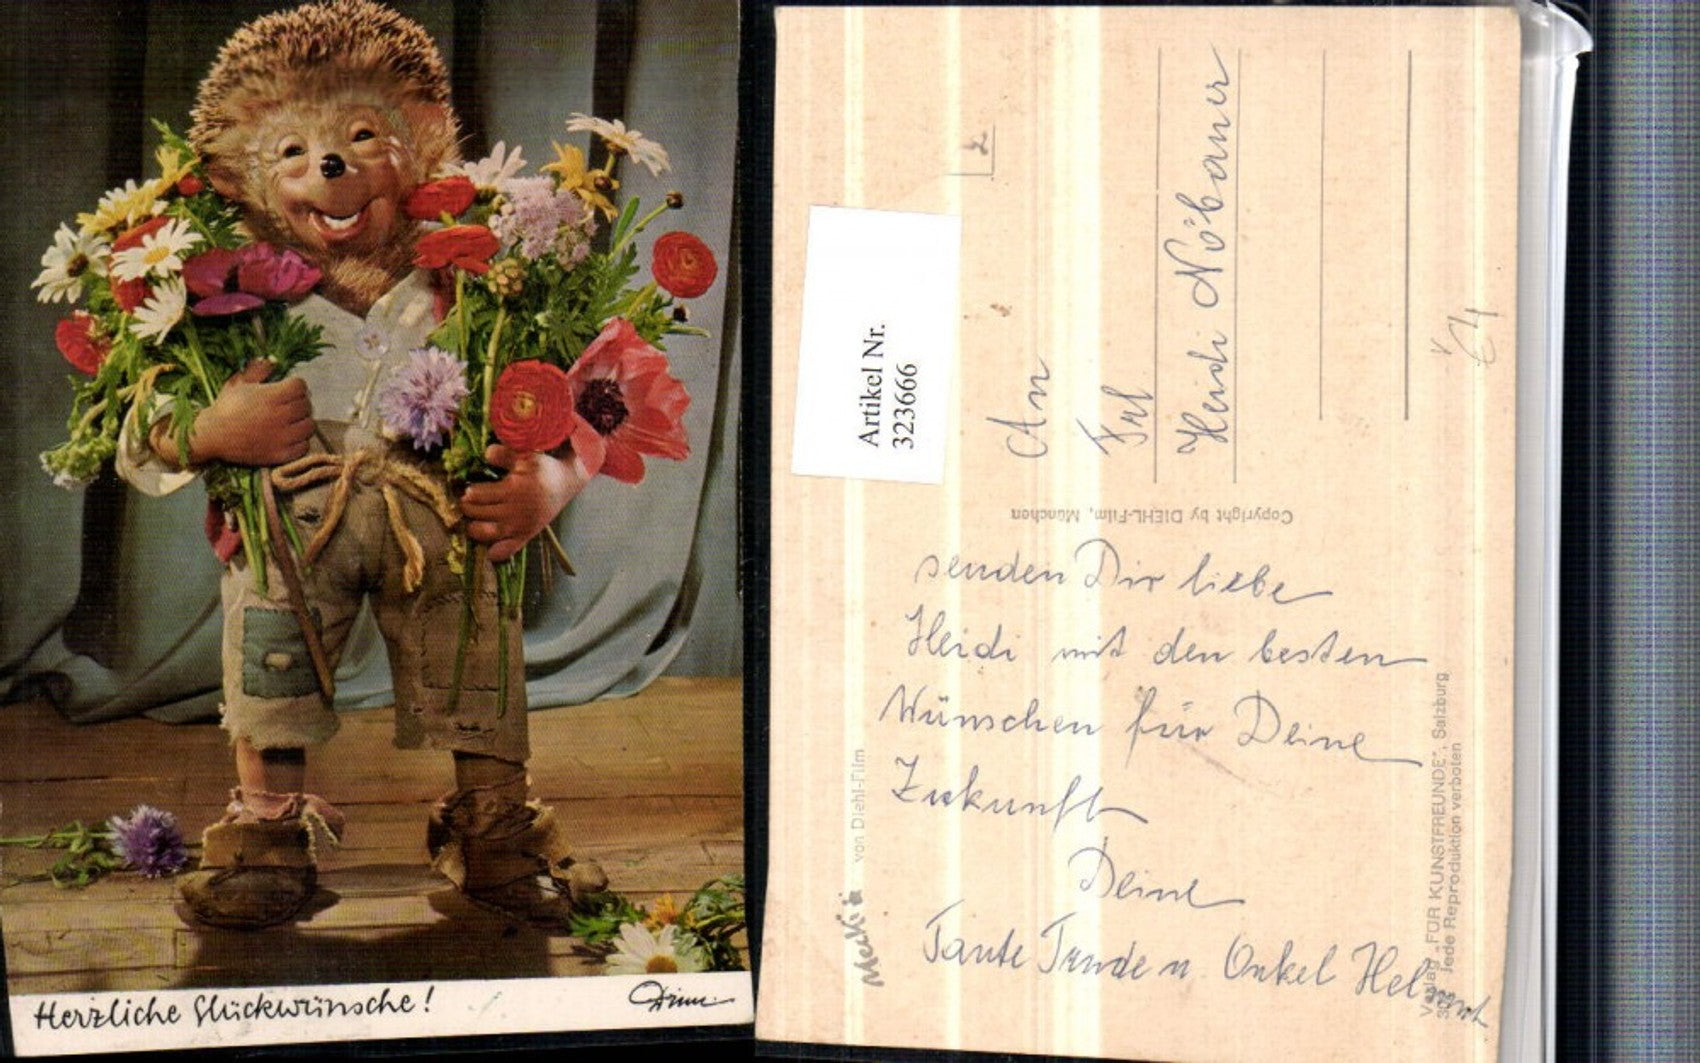 Herzliche Glückwünsche!
Diehl
Artikel Nr.
323666
2
An
Frl
Heidi Nöbauer
€4
Copyright by DIEHL-Film, München
senden Dir liebe
Heidi mit den besten
Wünschen für Deine
Zukunft
Deine
Tante Trude u. Onkel Helmut
Mecki
von Diehl-Film
Verlag „FÜR KUNSTFREUNDE", Salzburg
Jede Reproduktion verboten